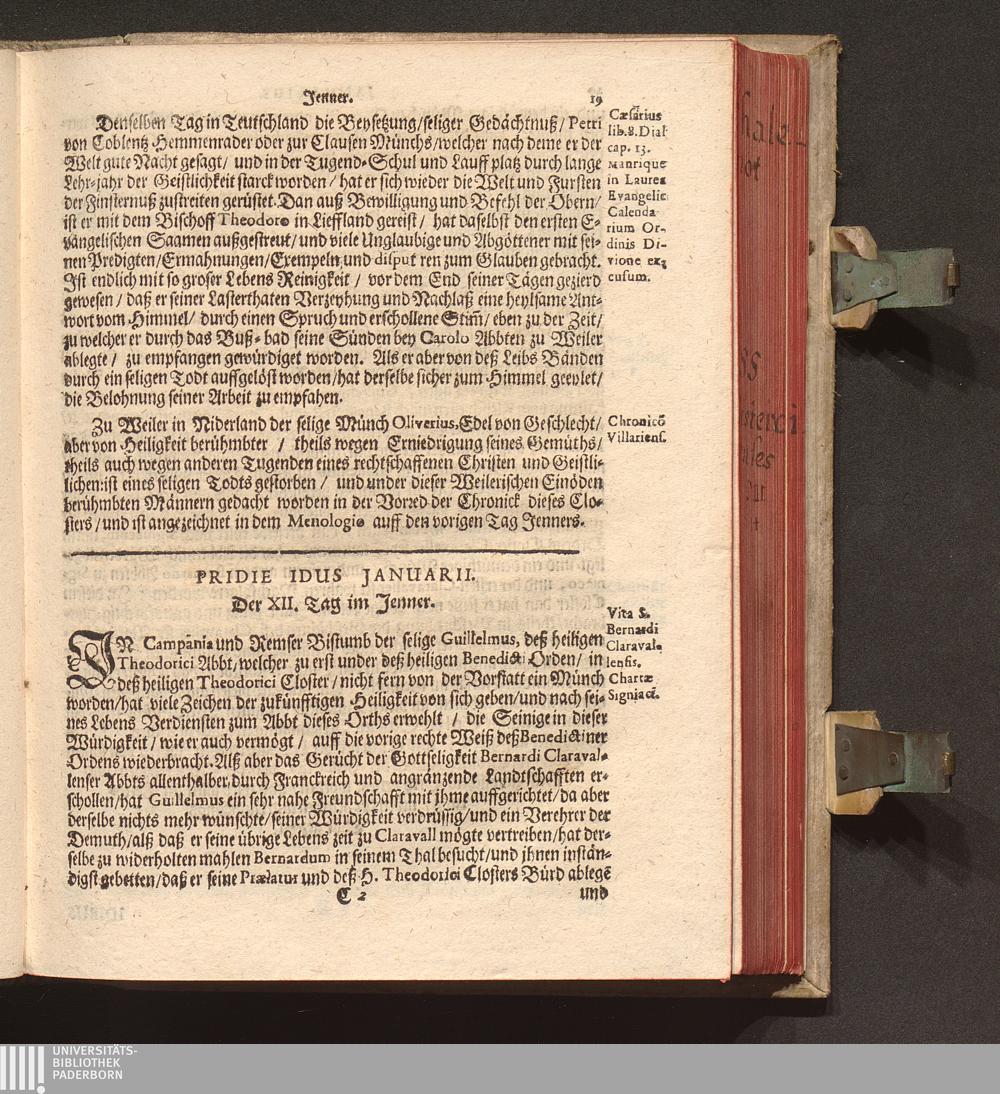 Jenner.
19
Denselben Tag in Teutschland die Beysetzung/seliger Gedächtnuß/Petri
von Coblentz Hemmenrader oder zur Clausen Münchs/welcher nach deme er der
Welt gute Nacht gesagt/ und in der Tugend-Schul und Lauff platz durch lange
Lehr-jahr der Geistlichkeit starck worden / hat er sich wieder die Welt und Fursten
der Finsternuß zustreiten gerüstet. Dan auß Bewilligung und Befehl der Obern/
ist er mit dem Bischoff Theodoro in Lieffland gereist / hat daselbst den ersten E-
vangelischen Saamen außgestreut/und viele Unglaubige und Abgöttener mit sei-
nen Predigten/Ermahnungen/Exempeln und disput ren zum Glauben gebracht.
Ist endlich mit so groser Lebens Reinigkeit / vor dem End seiner Tägen gezierd
gewesen / daß er seiner Lasterthaten Verzeyhung und Nachlaß eine heylsame Ant-
wort vom Himmel/ durch einen Spruch und erschollene Stim̃/ eben zu der Zeit/
zu welcher er durch das Buß-bad seine Sünden bey Carolo Abbten zu Weiler
ablegte / zu empfangen gewürdiget worden. Als er aber von deß Leibs Bänden
durch ein seligen Todt auffgelöst worden/hat derselbe sicher zum Himmel geeylet/
die Belohnung seiner Arbeit zu empfahen.
Cæsarius
lib. 8. Dial
cap. 13.
Manrique
in Laurea
Evangelic
Calenda
rium Or-
dinis Di-
vione ex-
cusum.
Zu Weiler in Niderland der selige Münch Oliverius, Edel von Geschlecht/
aber von Heiligkeit berühmbter / theils wegen Erniedrigung seines Gemüths/
theils auch wegen anderen Tugenden eines rechtschaffenen Christen und Geistli-
lichen: ist eines seligen Todts gestorben / und under dieser Weilerischen Einöden
berühmbten Männern gedacht worden in der Vorred der Chronick dieses Clo-
sters/und ist angezeichnet in dem Menologio auff den vorigen Tag Jenners.
Chronicõ
Villariens.
PRIDIE IDUS JANUARII.
Der XII. Tag im Jenner.
IN Campania und Remser Bistumb der selige Guilielmus, deß heiligen
Theodorici Abbt, welcher zu erst under deß heiligen Benedicti Orden/ in
deß heiligen Theodorici Closter/nicht fern von der Vorstatt ein Münch
worden/hat viele Zeichen der zukünfftigen Heiligkeit von sich geben/und nach sei-
nes Lebens Verdiensten zum Abbt dieses Orths erwehlt / die Seinige in dieser
Würdigkeit/wie er auch vermögt / auff die vorige rechte Weiß deß Benedictiner
Ordens wiederbracht. Alß aber das Gerücht der Gottseligkeit Bernardi Claraval-
lenser Abbts allenthalber durch Franckreich und angränzende Landtschafften er-
schollen/hat Guilielmus ein sehr nahe Freundschafft mit ihme auffgerichtet/da aber
derselbe nichts mehr wünschte/seiner Würdigkeit verdrüssig/und ein Verehrer der
Demuth/alß daß er seine übrige Lebens zeit zu Claravall mögte vertreiben/hat der-
selbe zu widerholten mahlen Bernardum in seinem Thal besucht/und ihnen instän-
digst gebetten/daß er seine Prælatur und deß H. Theodorici Closters Bürd ablegē
Vita S.
Bernardi
Claraval-
lensis.
Chartæ
Signiacẽ.
C 2
und
UNIVERSITÄTS-
BIBLIOTHEK
PADERBORN